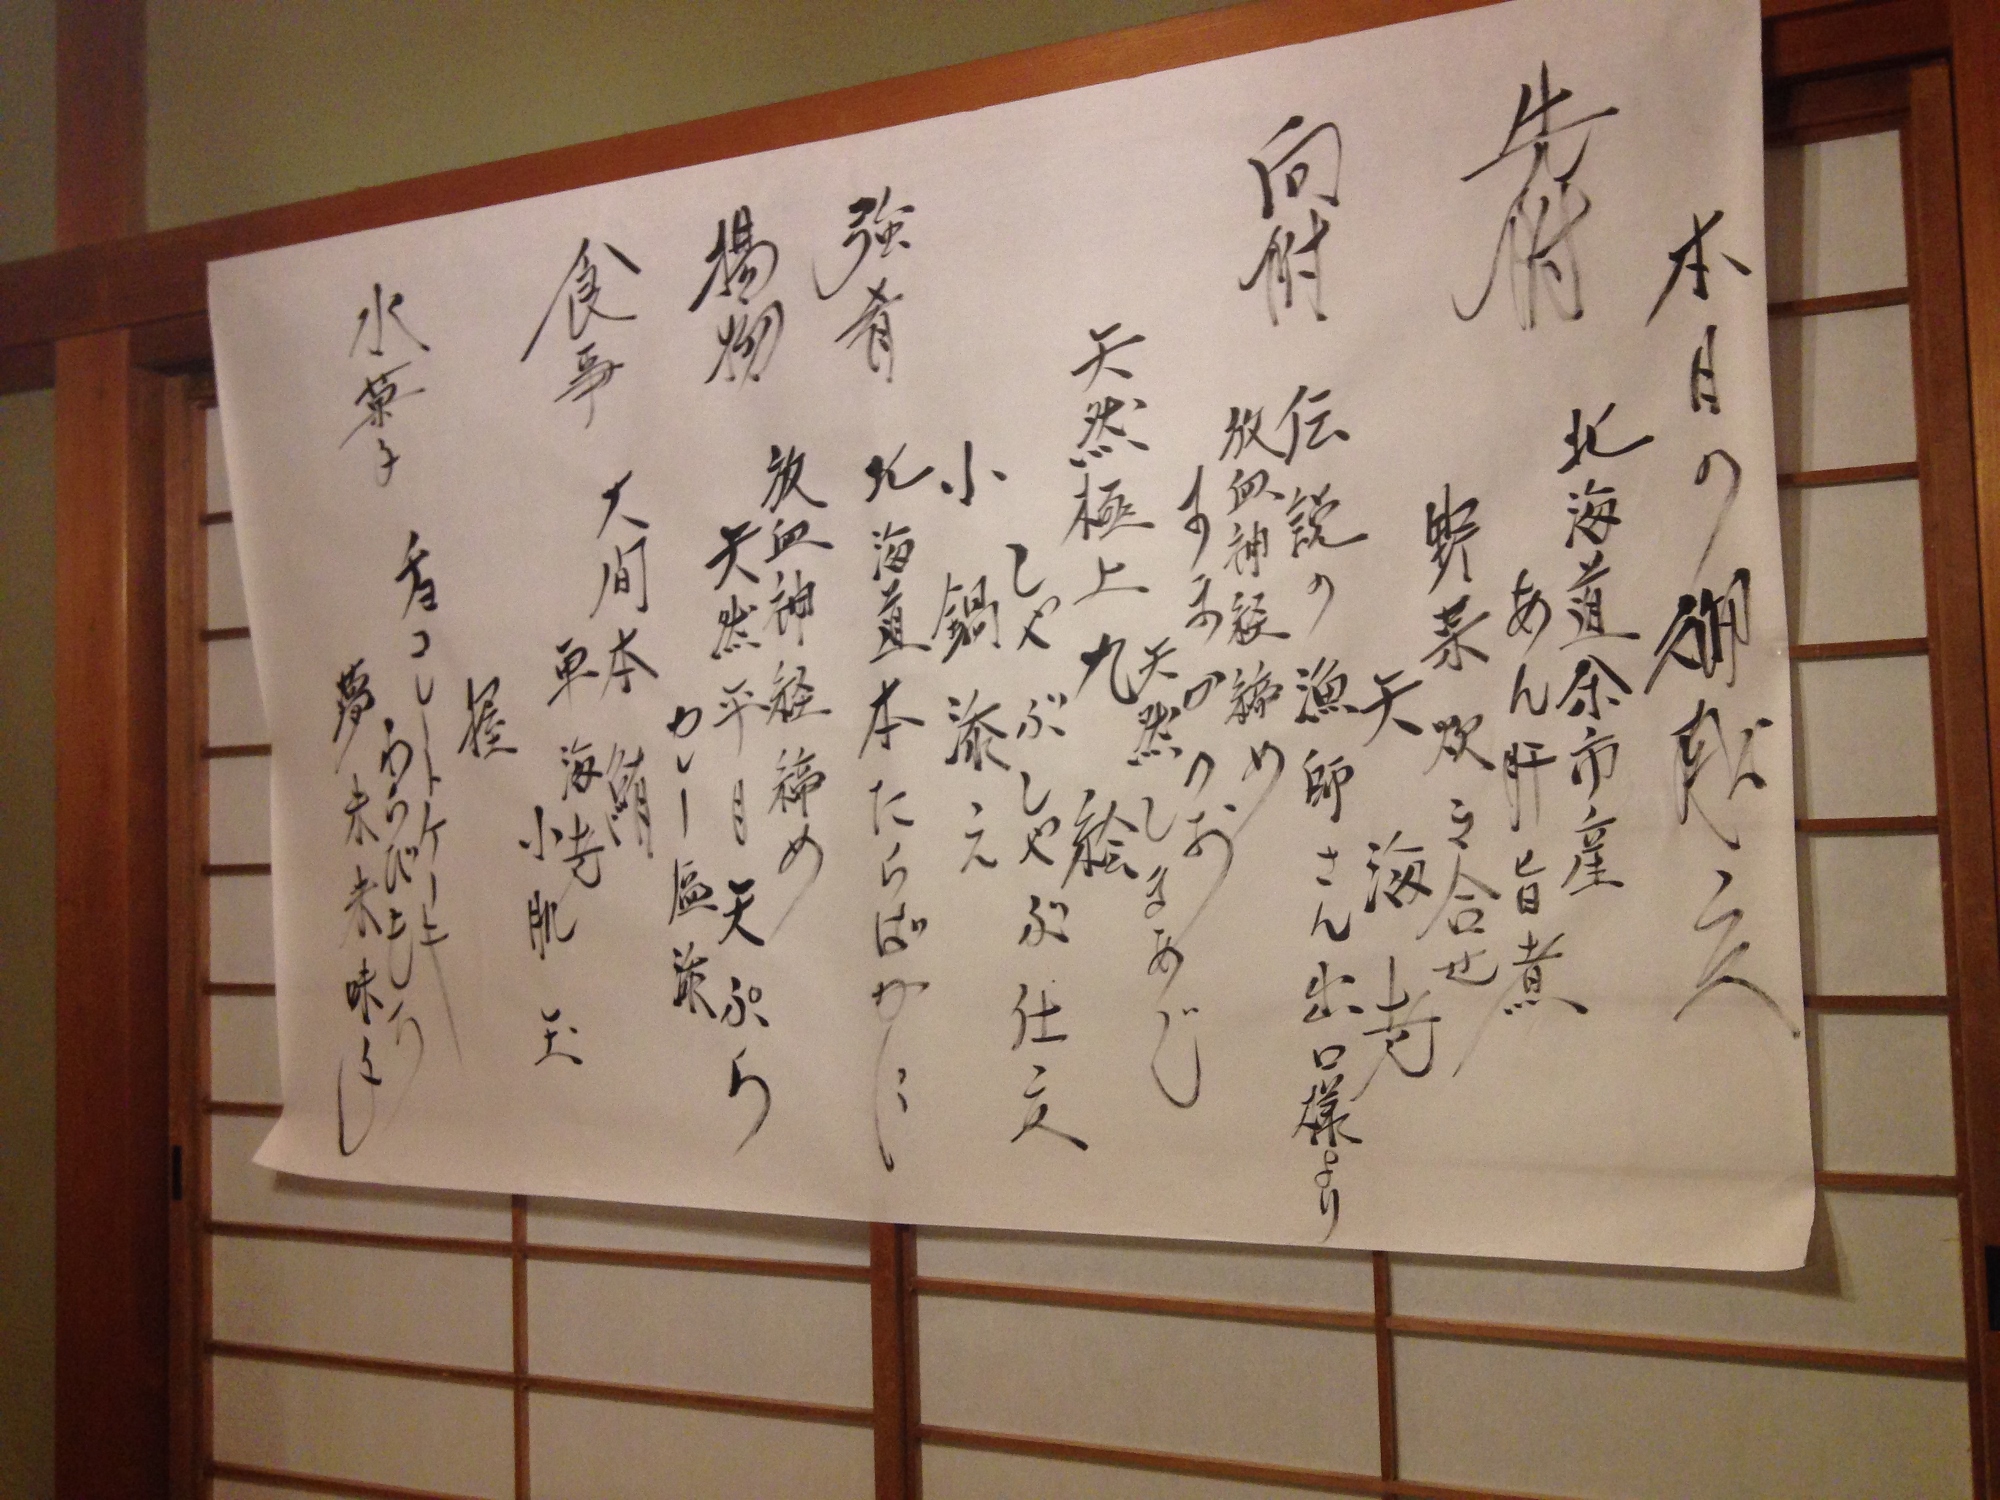 本日の御献立
先附
北海道余市産
あん肝旨煮
野菜炊き合せ
天海老
向附
伝説の漁師さん出口様より
放血神経締め
天然しまあじ
天然極上九絵
しゃぶしゃぶ仕立
小鍋添え
強肴
北海道本たらばかに
揚物
放血神経締め
天然平目天ぷら
カレー塩添
食事
大間本鮪
車海老
小肌
玉
握
水菓子
わらびもち